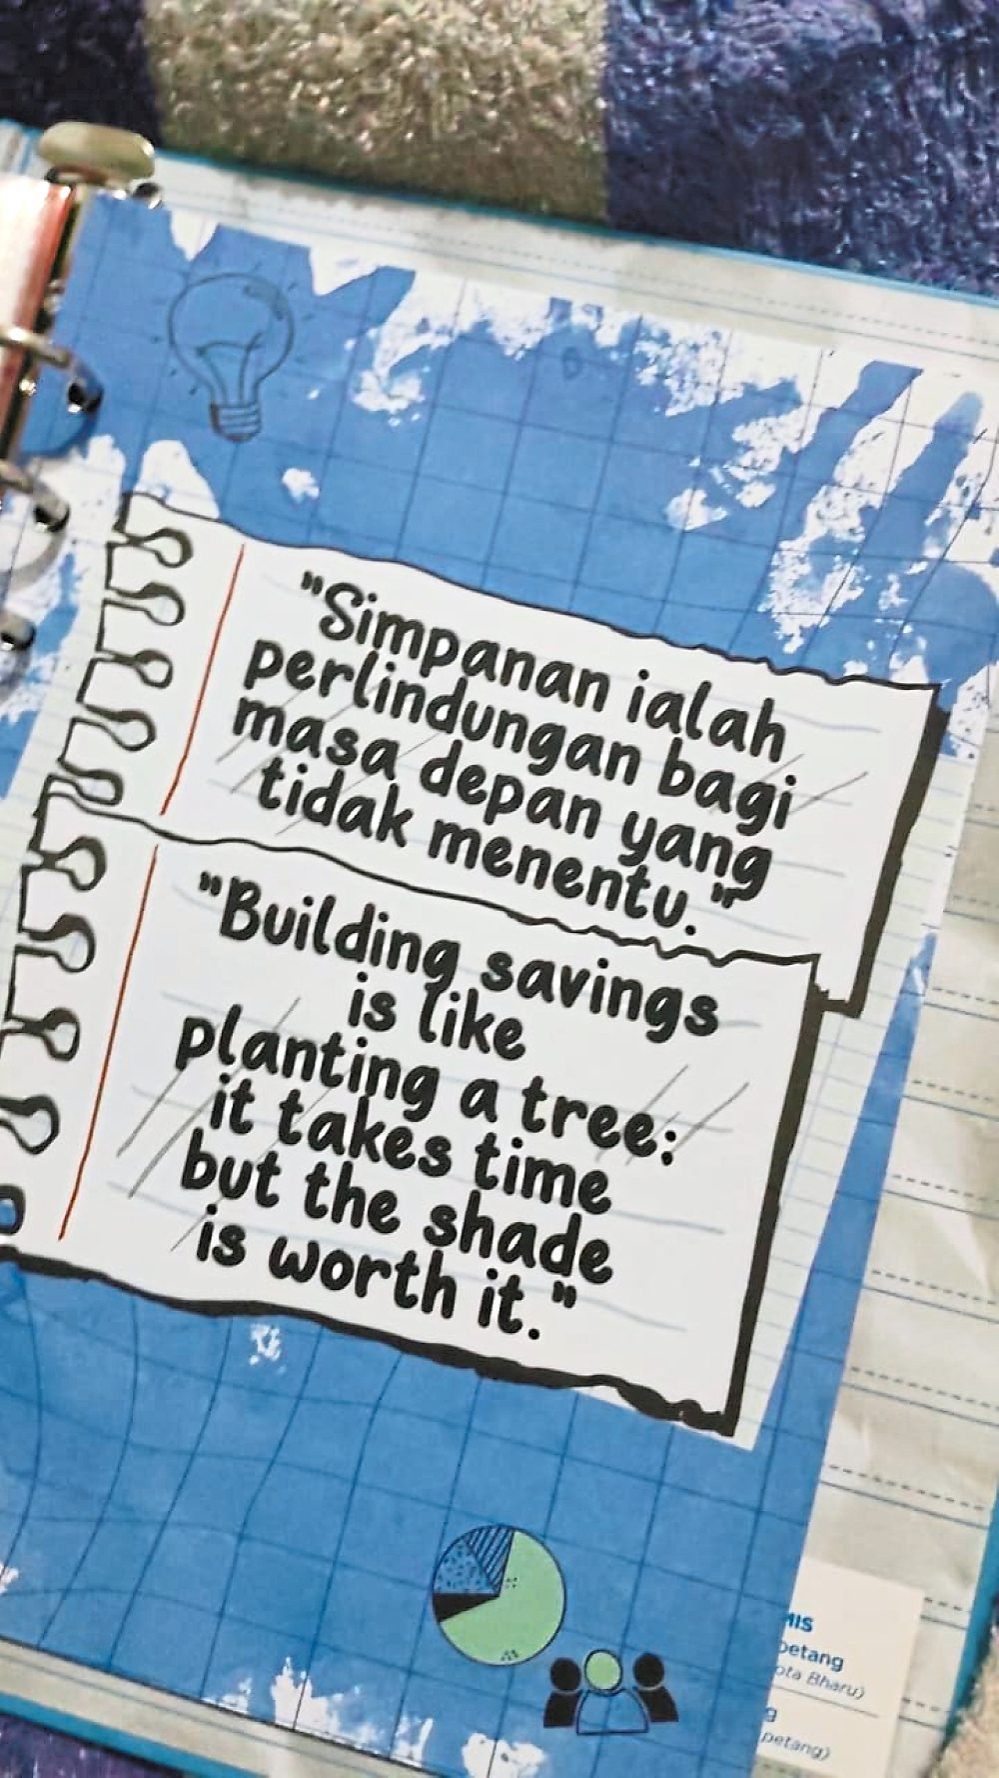 "Simpanan ialah
perlindungan bagi
masa depan yang
tidak menentu."
"Building savings
is like
planting a tree:
it takes time
but the shade
is worth it."
petang
ota Bharu)
petang)